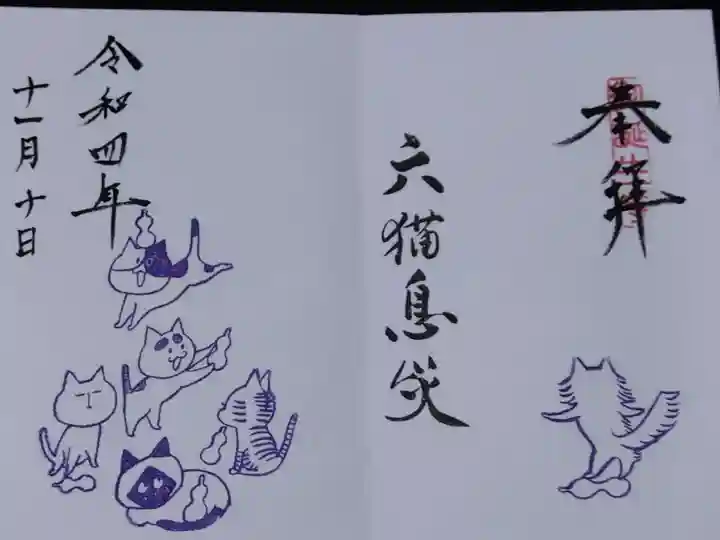 奉拝
六猫息災
令和四年
十一月十日